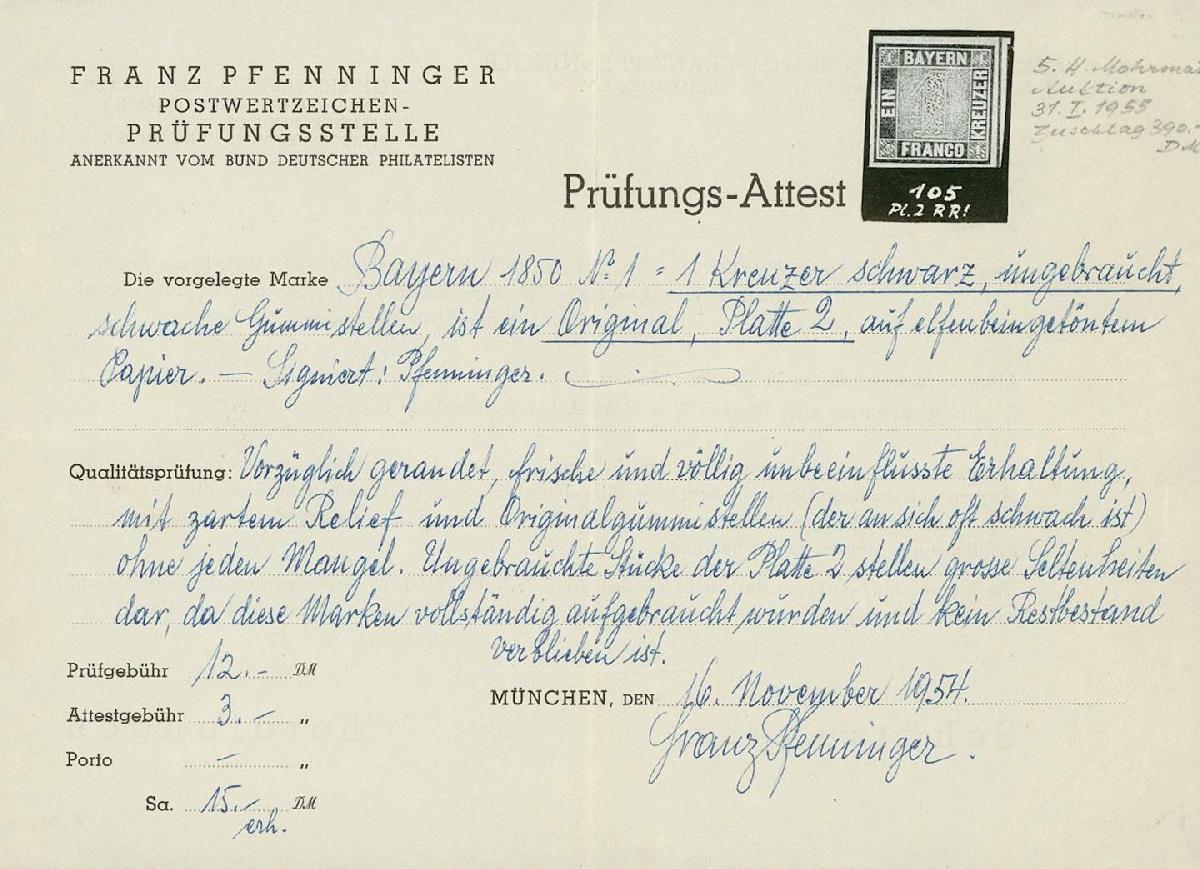 FRANZ PFENNINGER
POSTWERTZEICHEN-
PRÜFUNGSSTELLE
ANERKANNT VOM BUND DEUTSCHER PHILATELISTEN
BAYERN
EIN
KREUZER
FRANCO
105
Pl. 2 RR!
5. H. Mohrma
Auktion
31. I. 1955
Zuschlag 390.-
DM
Prüfungs-Attest
Die vorgelegte Marke Bayern 1850 No 1 = 1 Kreuzer schwarz, ungebraucht,
schwache Gummistellen, ist ein Original, Platte 2, auf elfenbeingetöntem
Papier. — Signiert: Pfenninger.
Qualitätsprüfung: Vorzüglich gerandet, frische und völlig unbeeinflusste Erhaltung,
mit zartem Relief und Originalgummistellen (der an sich oft schwach ist)
ohne jeden Mangel. Ungebrauchte Stücke der Platte 2 stellen grosse Seltenheiten
dar, da diese Marken vollständig aufgebraucht wurden und kein Restbestand
verblieben ist.
Prüfgebühr 12.- DM
Attestgebühr 3.- „
Porto - „
Sa. 15.- DM
erh.
MÜNCHEN, DEN 16. November 1954.
Franz Pfenninger.